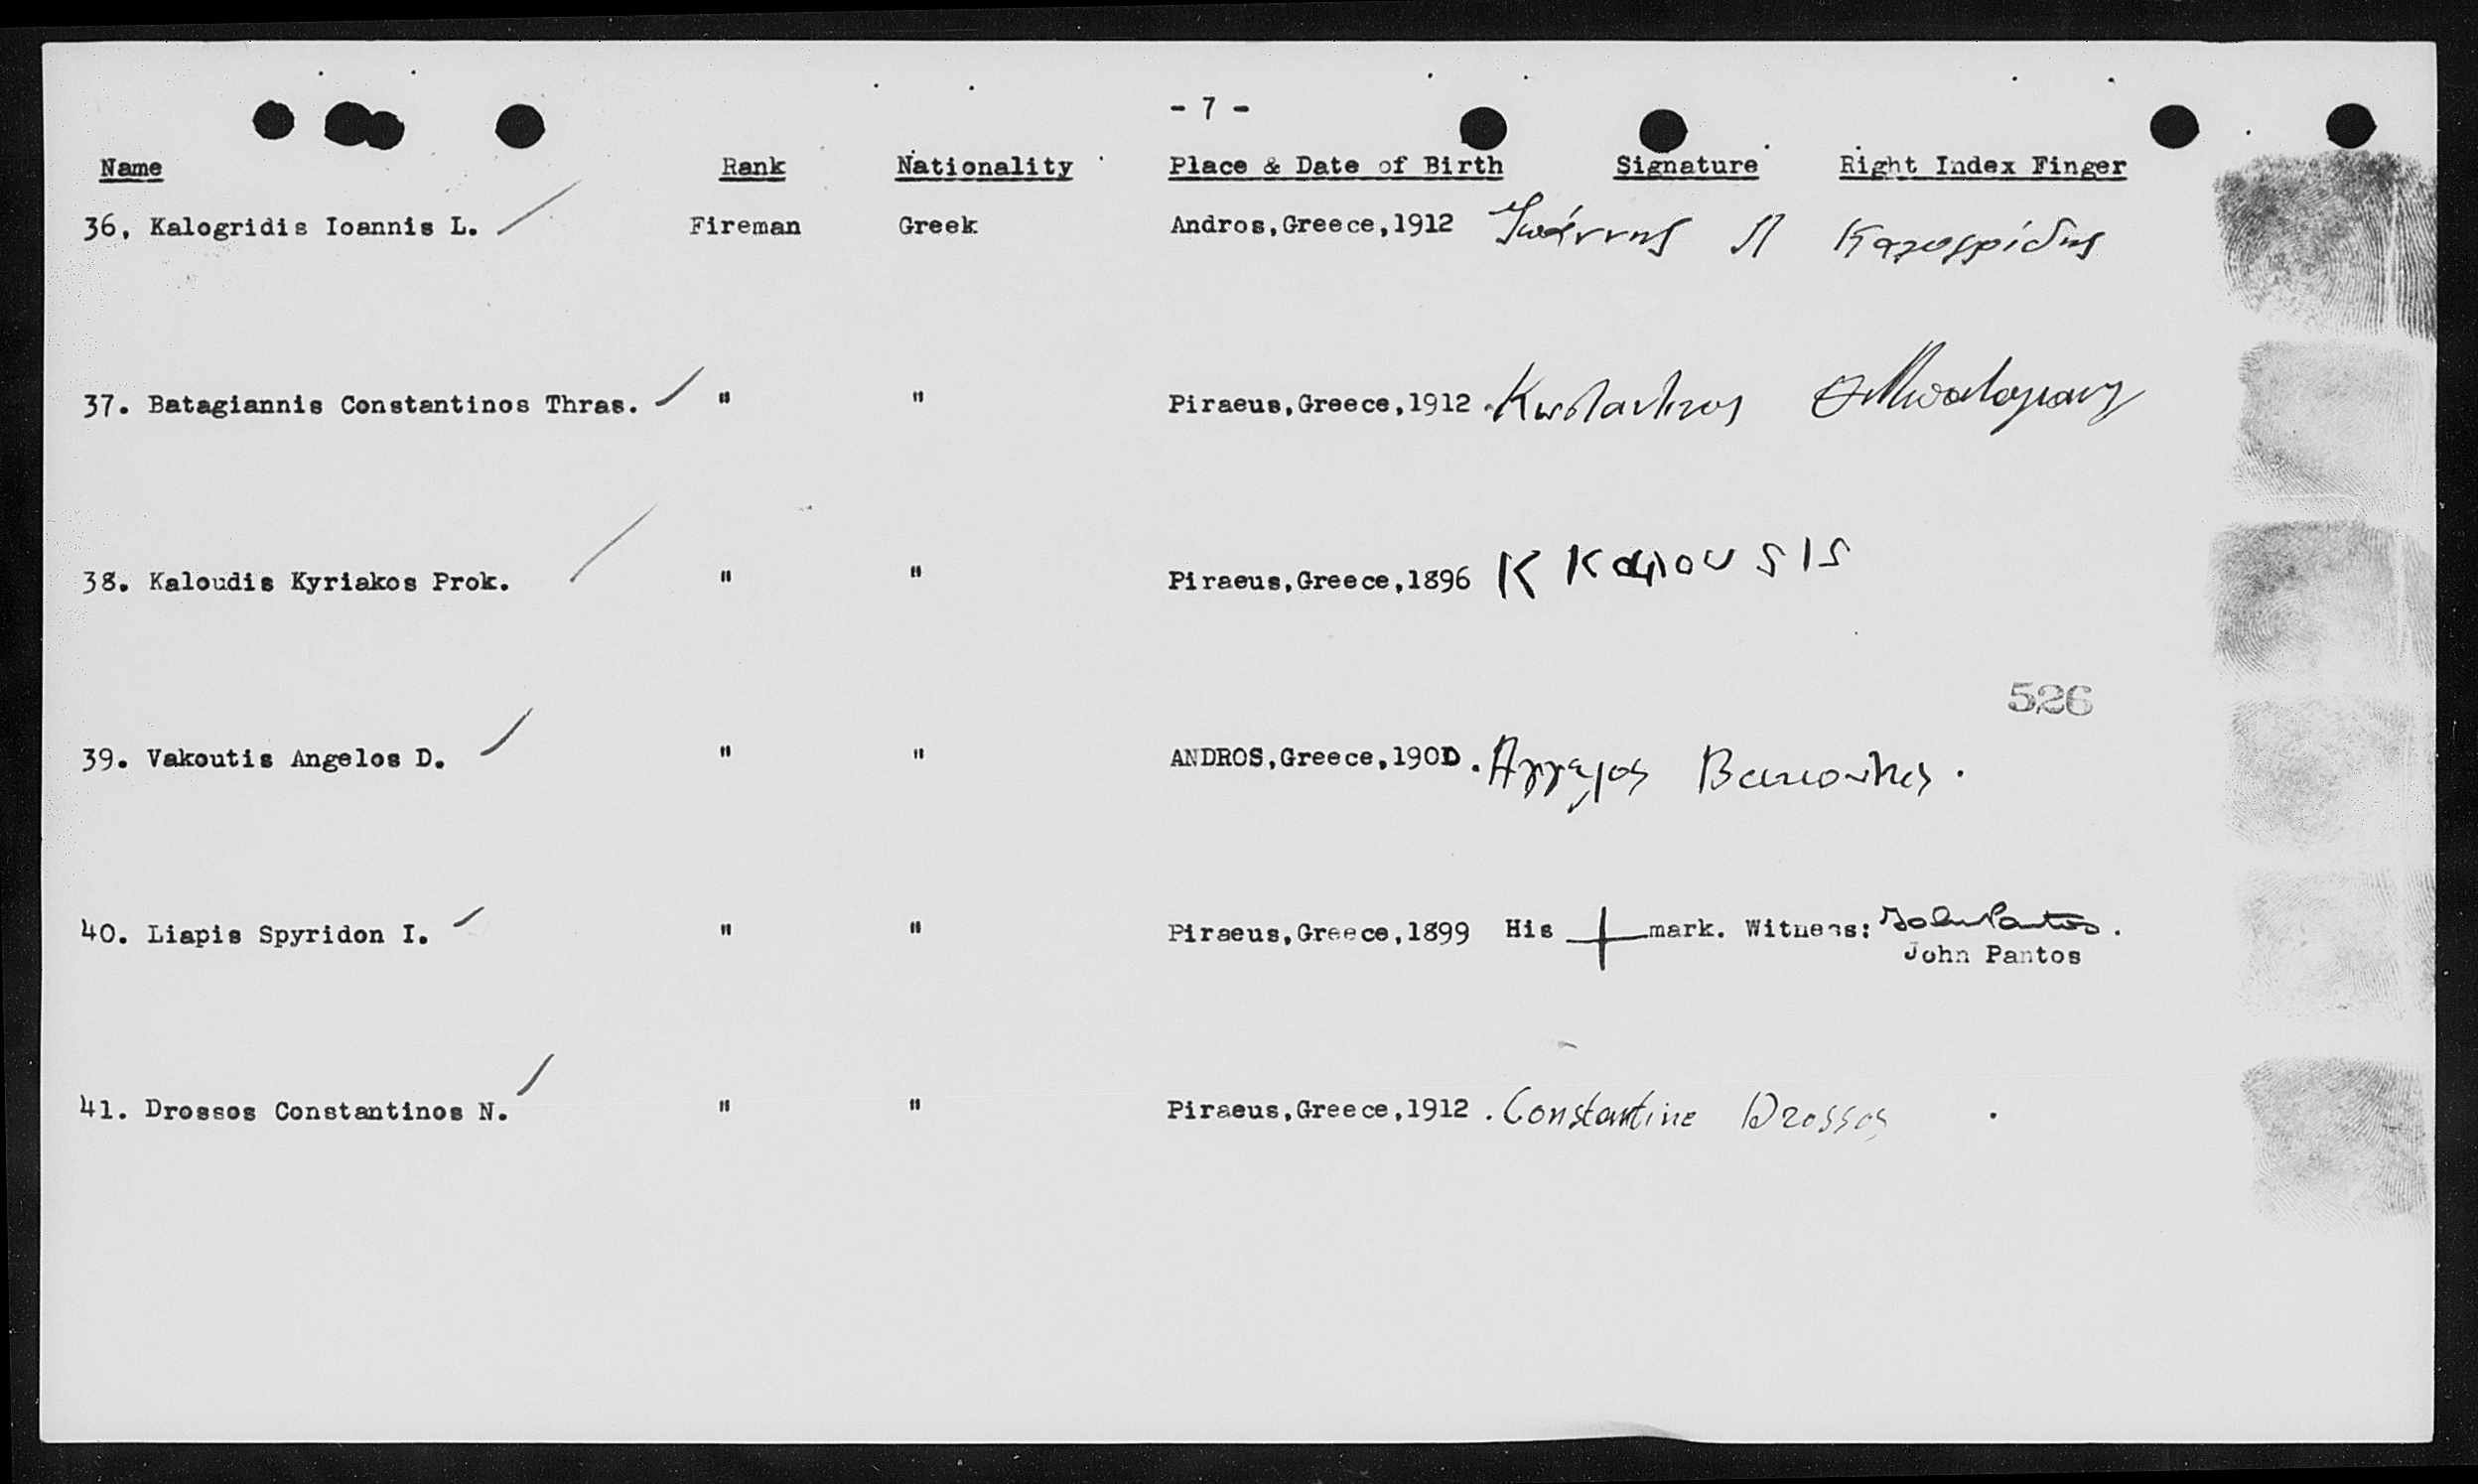 - 7 -
Name Rank Nationality Place & Date of Birth Signature Right Index Finger
36, Kalogridis Ioannis L. Fireman Greek Andros,Greece,1912 Ἰωάννης Λ Καλογρίδης
37. Batagiannis Constantinos Thras. " " Piraeus,Greece,1912. Κωσταντινος
38. Kaloudis Kyriakos Prok. " " Piraeus,Greece,1896 Κ
526
39. Vakoutis Angelos D. " " ANDROS,Greece,190D. Αγγελος Βακουτης.
40. Liapis Spyridon I. " " Piraeus,Greece,1899 His + mark. Witness: John Pantos.
John Pantos
41. Drossos Constantinos N. " " Piraeus,Greece,1912. Constantine Drossos .